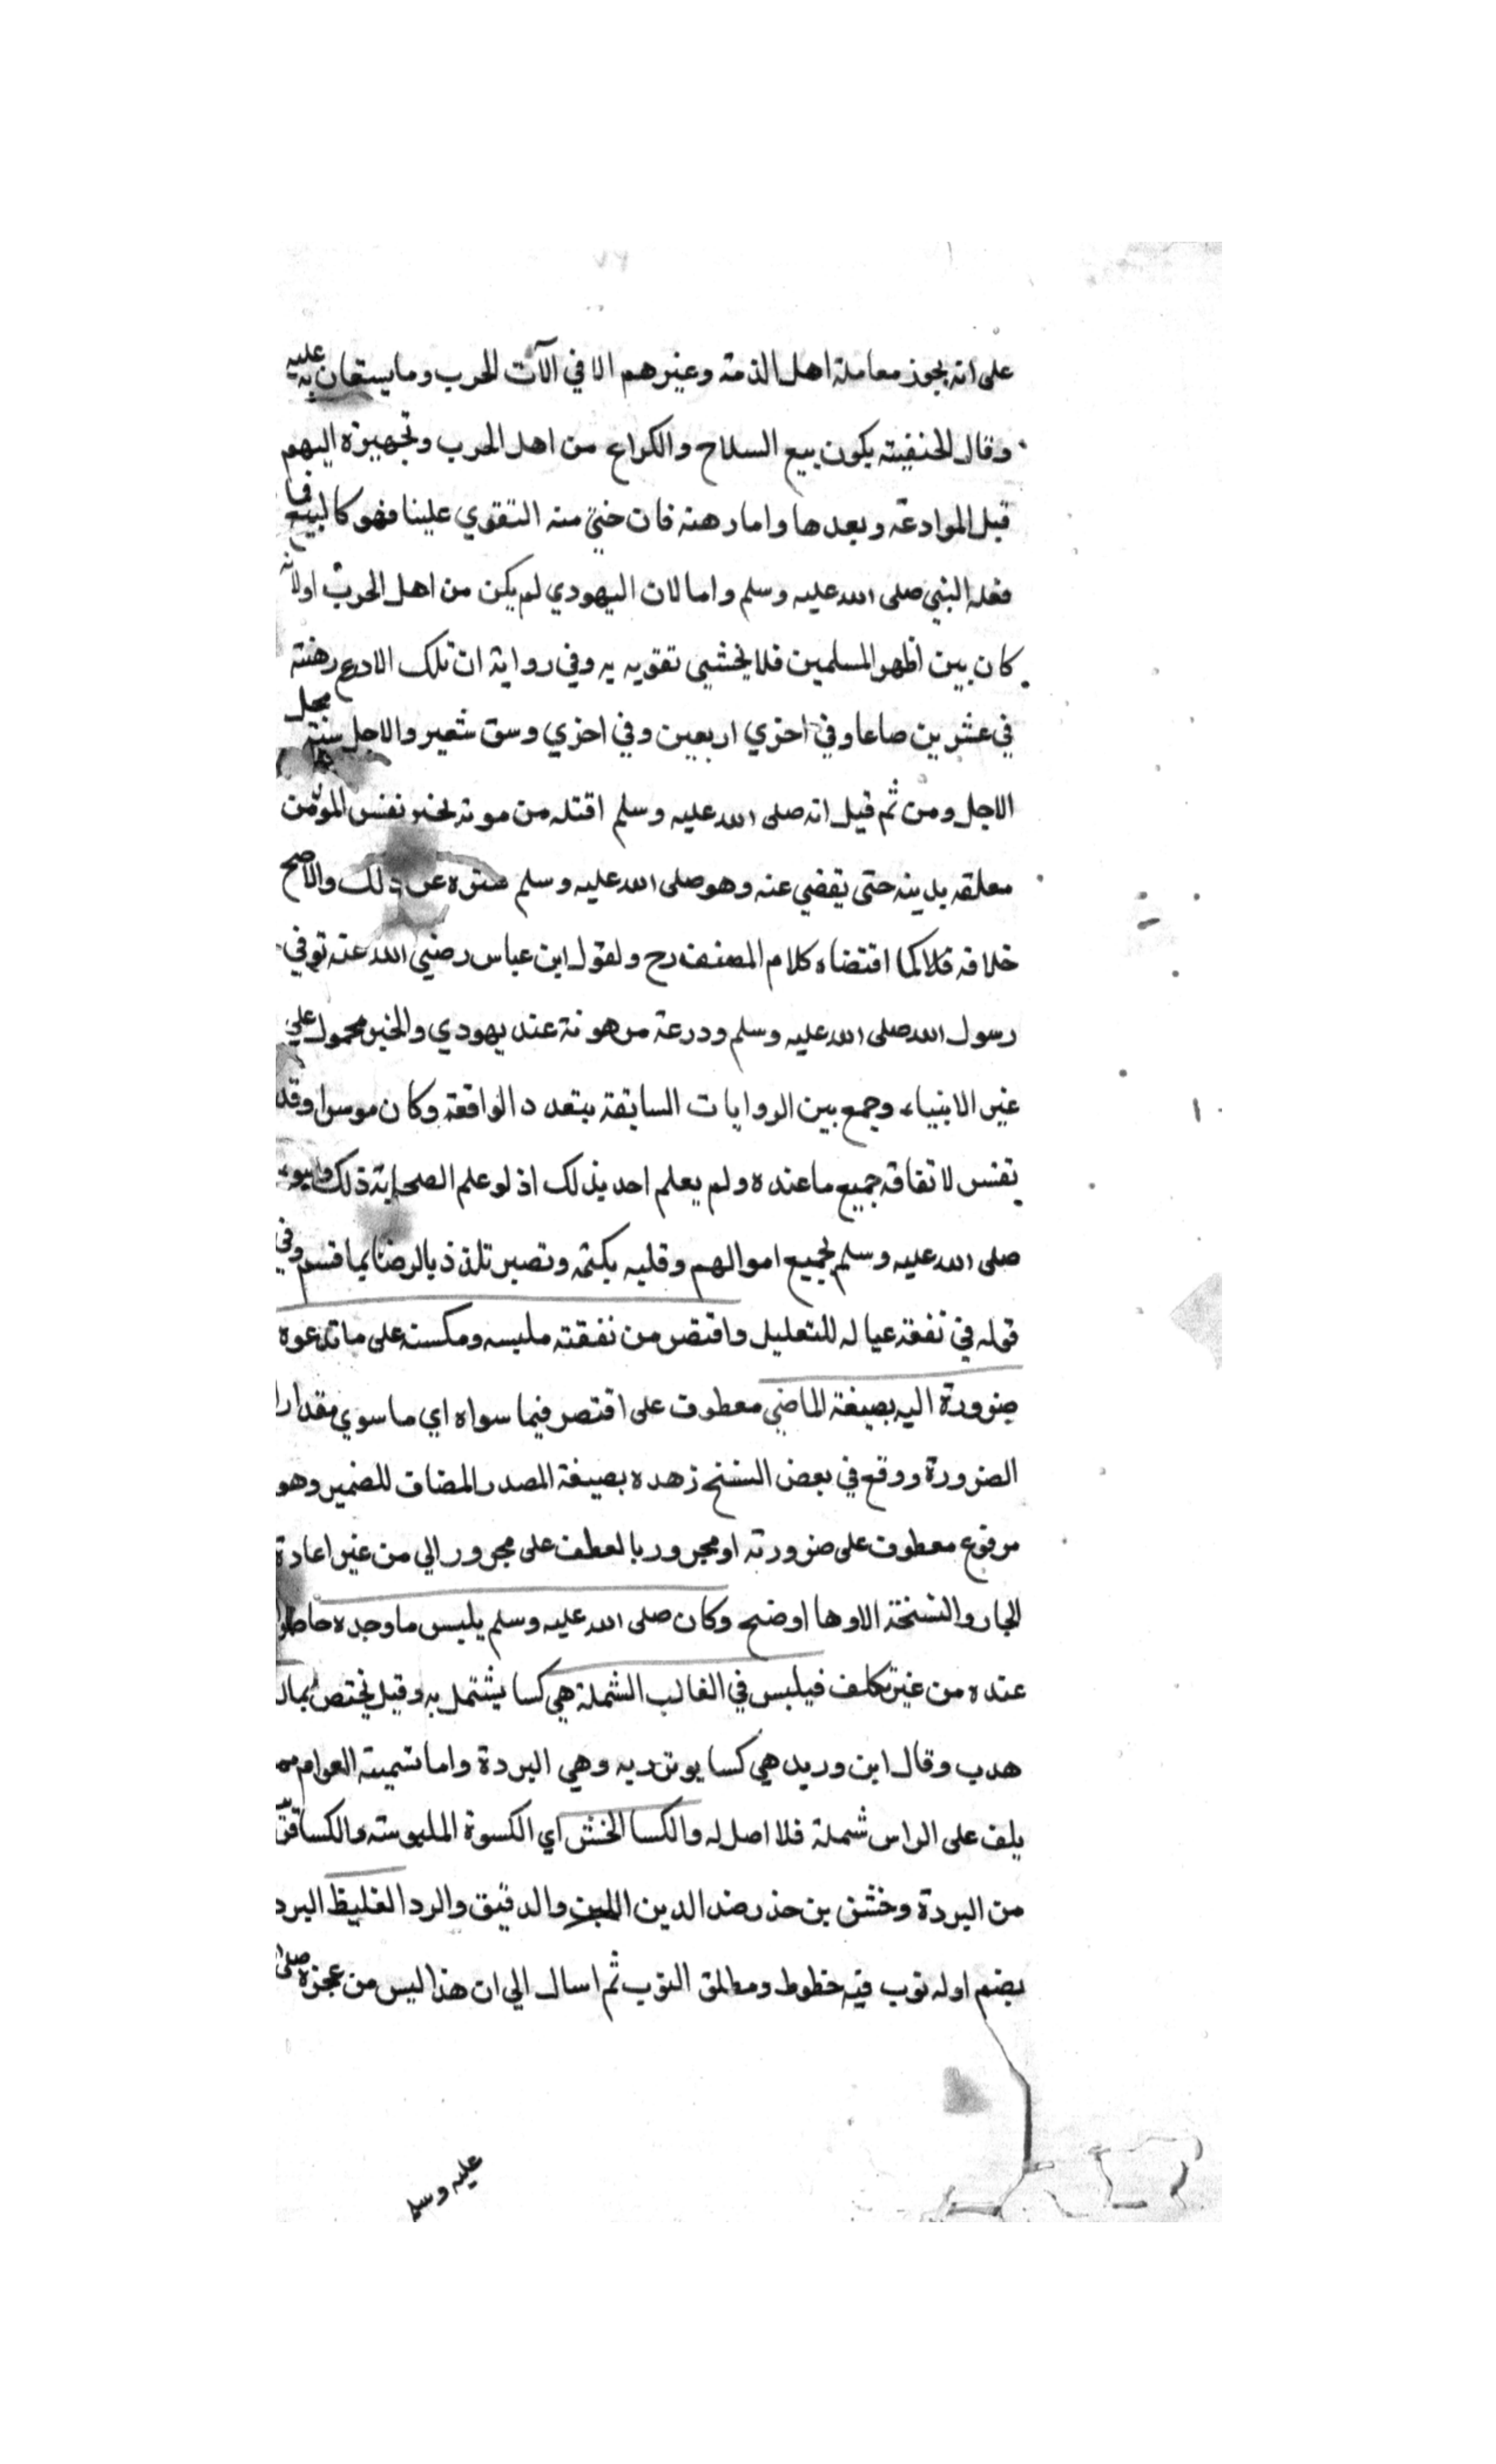 على انه يجوز معاملة اهل الذمة وغيرهم الا في الآت الحرب وما يستعان به عليه
وقال الحنفيته يكون بيع السلاح والكراع من اهل الحرب وتجهيزه اليهم
قبل الموادعة وبعدها واما رهنه فان خشي منه التقوي علينا فهو كالبيع فما
فعله النبي صلى الله عليه وسلم واما لان اليهودي لم يكن من اهل الحرب اولانه
كان بين اظهر المسلمين فلا يخشي تقويه به وفي رواية ان تلك الادرع رهنته
في عشرين صاعا وفي اخري اربعين وفي اخري وسق شعير والاجل سنته محل
الاجل ومن ثم قيل انه صلى الله عليه وسلم اقتله من موته لخبر نفس المؤمن
معلقه بدينه حتى يقضي عنه وهو صلى الله عليه وسلم منزه عن ذلك والاصح
خلافه فلا كما اقتضاه كلام المصنف رح ولقول ابن عباس رضي الله عنه توفي
رسول الله صلى الله عليه وسلم ودرعة مرهونة عند يهودي والخبر محمول على
غير الانبياء وجمع بين الروايات السابقة بتعدد الواقعة وكان موسرا وقد
نفس لانفاقه جميع ما عنده ولم يعلم احد بذلك اذ لو علم الصحابة ذلك
صلى الله عليه وسلم بجميع اموالهم وقلبه يكتمه وتصبر تلذذ بالرضا بما قسم وفي
قوله في نفقة عياله للتعليل واقتصر من نفقته ملبسه ومكسنه على ما تدعوه
ضرورة اليه بصيغة الماضي معطوف على اقتصر فيما سواه اي ما سوي مقدار
الضرورة ووقع في بعض النسخ زهده بصيغة المصدر المضاف للضمير وهو
مرفوع معطوف على ضرورته او مجرور بالعطف على مجرور الي من غير اعادة
الجار والنسخة الاوها اوضح وكان صلى الله عليه وسلم يلبس ما وجده حاضرا
عنده من غير تكلف فيلبس في الغالب الشملة هي كسا يشتمل به وقيل يختص بما له
هدب وقال ابن وريد هي كسا يوتزر به وهي البردة واما تسميته العوام
يلف على الراس شملة فلا اصل له والكسا الخشن اي الكسوة الملبوسته والكسا
من البردة وخشن بن حذر ضد الدين اللين والدقيق والردا الغليظ البرد
بضم اوله ثوب فيه خطوط ومطلق الثوب ثم اسال الي ان هذا ليس من عجزه صلى
عليه وسلم